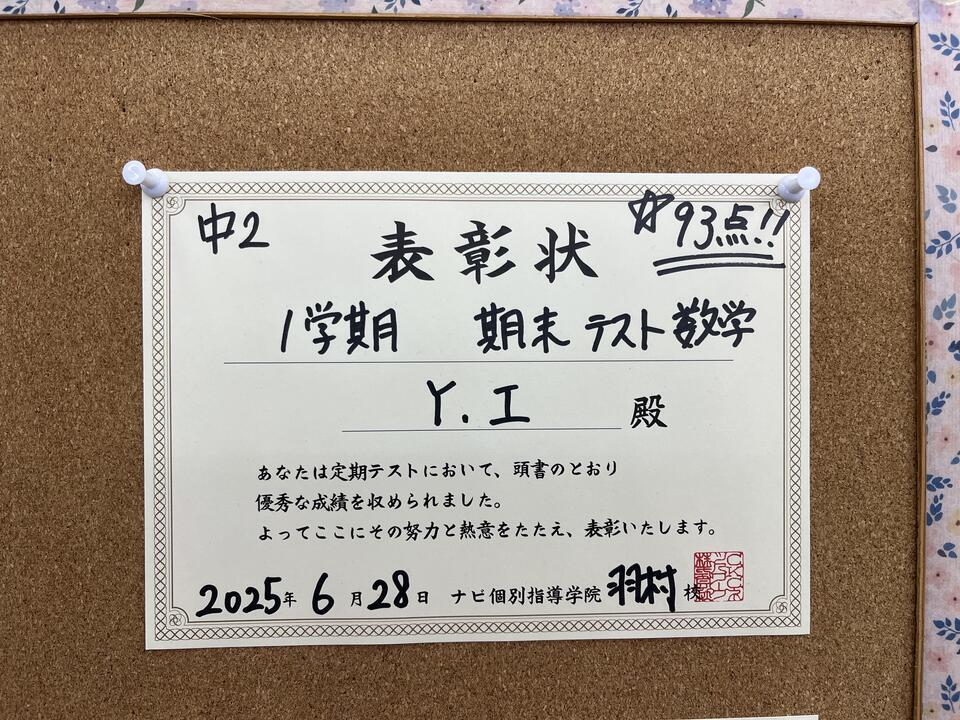 中2
☆93点!!
表彰状
1学期 期末 テスト 数学
Y.I 殿
あなたは定期テストにおいて、頭書のとおり
優秀な成績を収められました。
よってここにその努力と熱意をたたえ、表彰いたします。
2025年 6月28日 ナビ個別指導学院 羽村校